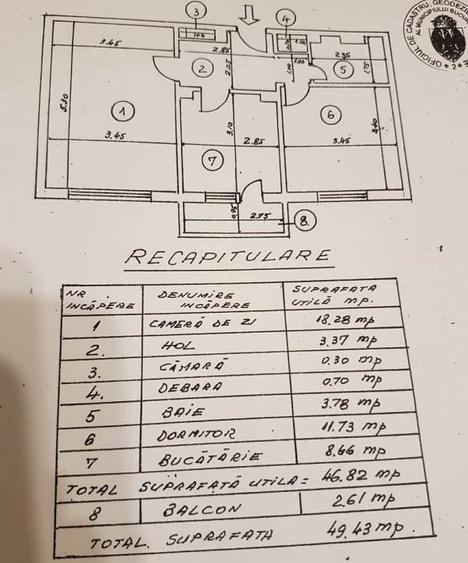 3
4
3.45
2.85
2
5.30
1
3.45
2.05
1.00
2.35
5
1.75
6
3.10
2.85
3.45
3.40
7
0.95
2.75
8.
OFICIUL DE CADASTRU, GEODEZIE
AL MUNICIPIULUI BUCU
RECAPITULARE
NR INCĂPERE DENUMIRE INCĂPERE SUPRAFAȚA UTILĂ MP.
1 CAMERĂ DE ZI 18.28 mp
2. HOL 3.37 mp
3. CĂMARĂ 0.30 mp
4. DEBARA 0.70 mp
5 BAIE 3.78 mp
6 DORMITOR 11.73 mp
7 BUCĂTĂRIE 8.66 mp
TOTAL SUPRAFAȚĂ UTILA = 46.82 mp
8 BALCON 2.61 mp
TOTAL. SUPRAFATA 49.43 mp.